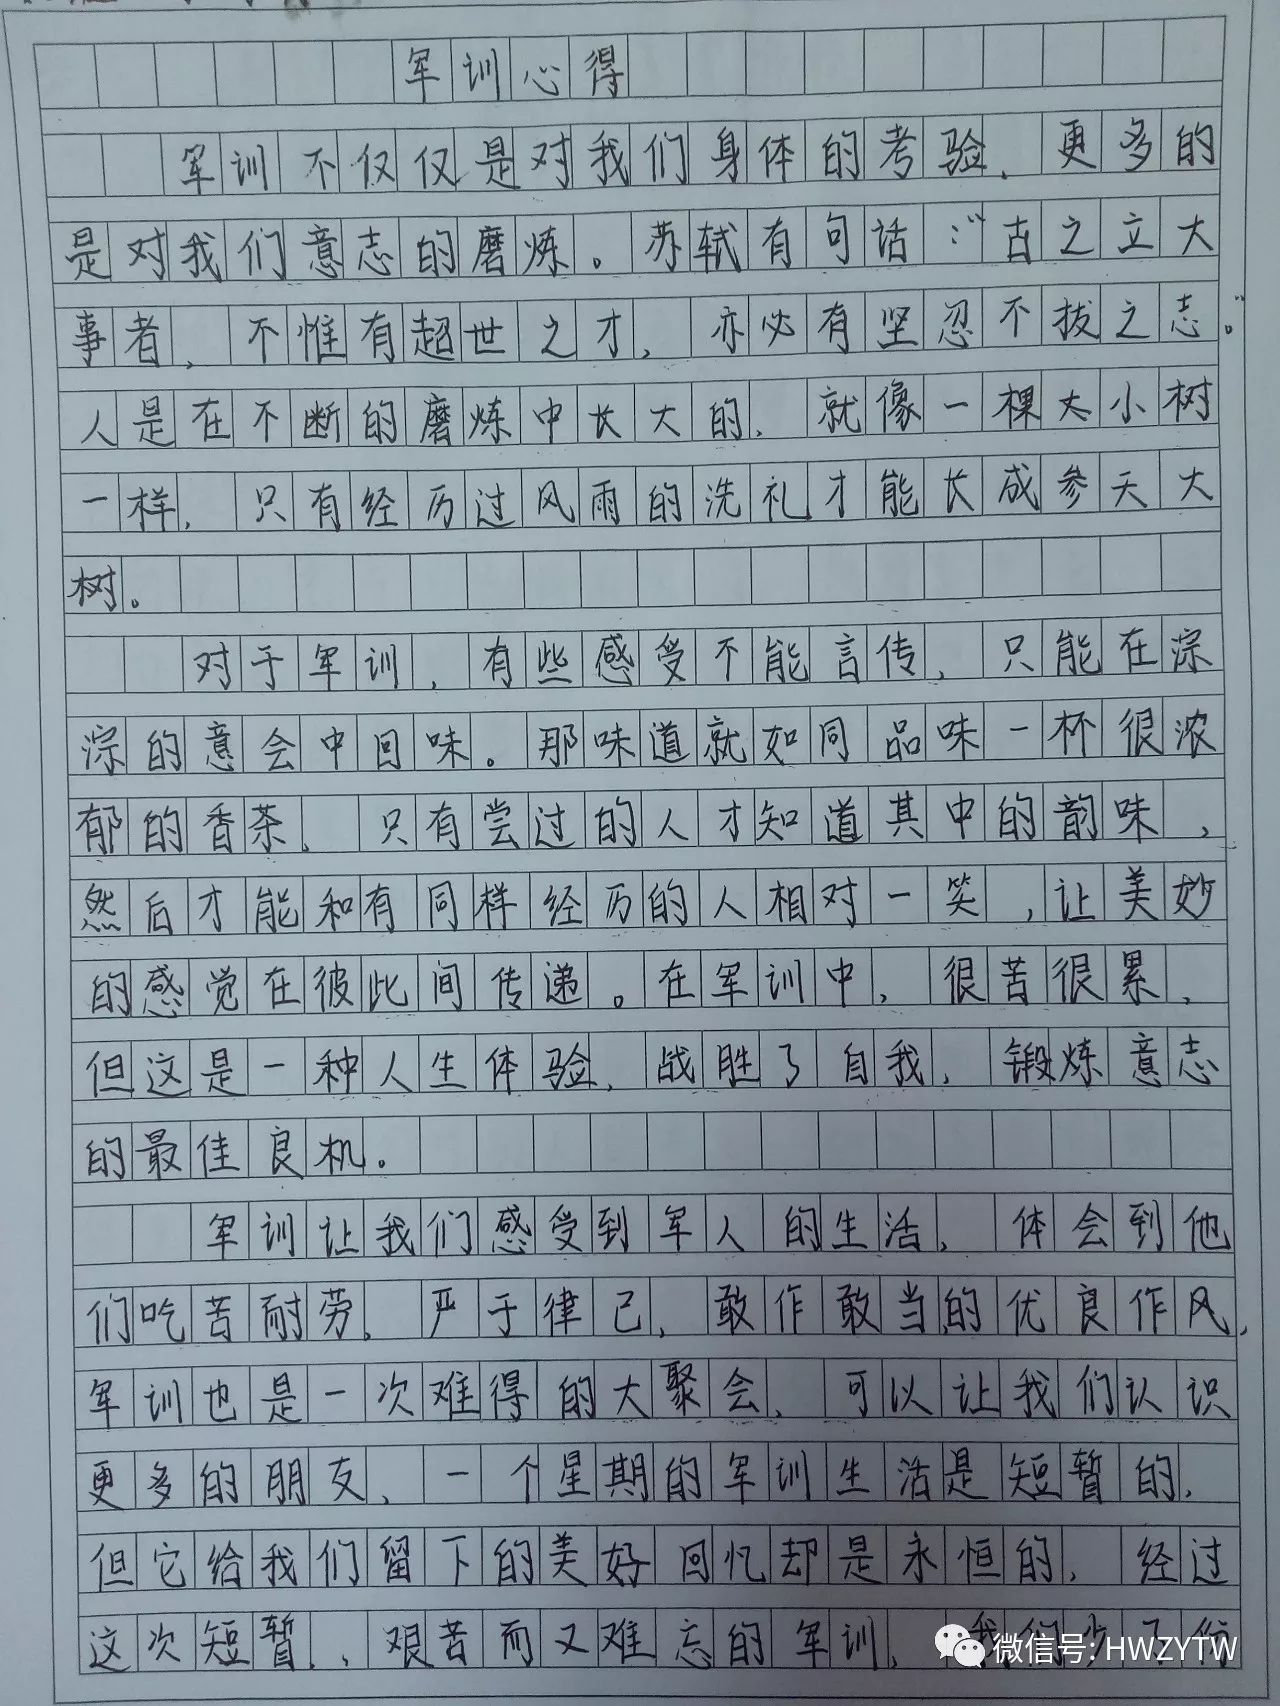 军训心得
军训不仅仅是对我们身体的考验，更多的
是对我们意志的磨炼。苏轼有句话：“古之立大
事者，不惟有超世之才，亦必有坚忍不拔之志。”
人是在不断的磨炼中长大的，就像一棵大小树
一样，只有经历过风雨的洗礼才能长成参天大
树。
对于军训，有些感受不能言传，只能在淙
淙的意会中回味。那味道就如同品味一杯很浓
郁的香茶，只有尝过的人才知道其中的韵味，
然后才能和有同样经历的人相对一笑，让美妙
的感觉在彼此间传递。在军训中，很苦很累，
但这是一种人生体验，战胜了自我，锻炼意志
的最佳良机。
军训让我们感受到军人的生活，体会到他
们吃苦耐劳，严于律己，敢作敢当的优良作风，
军训也是一次难得的大聚会，可以让我们认识
更多的朋友，一个星期的军训生活是短暂的，
但它给我们留下的美好回忆却是永恒的，经过
这次短暂，、艰苦而又难忘的军训，我们少了份
微信号: HWZYTW